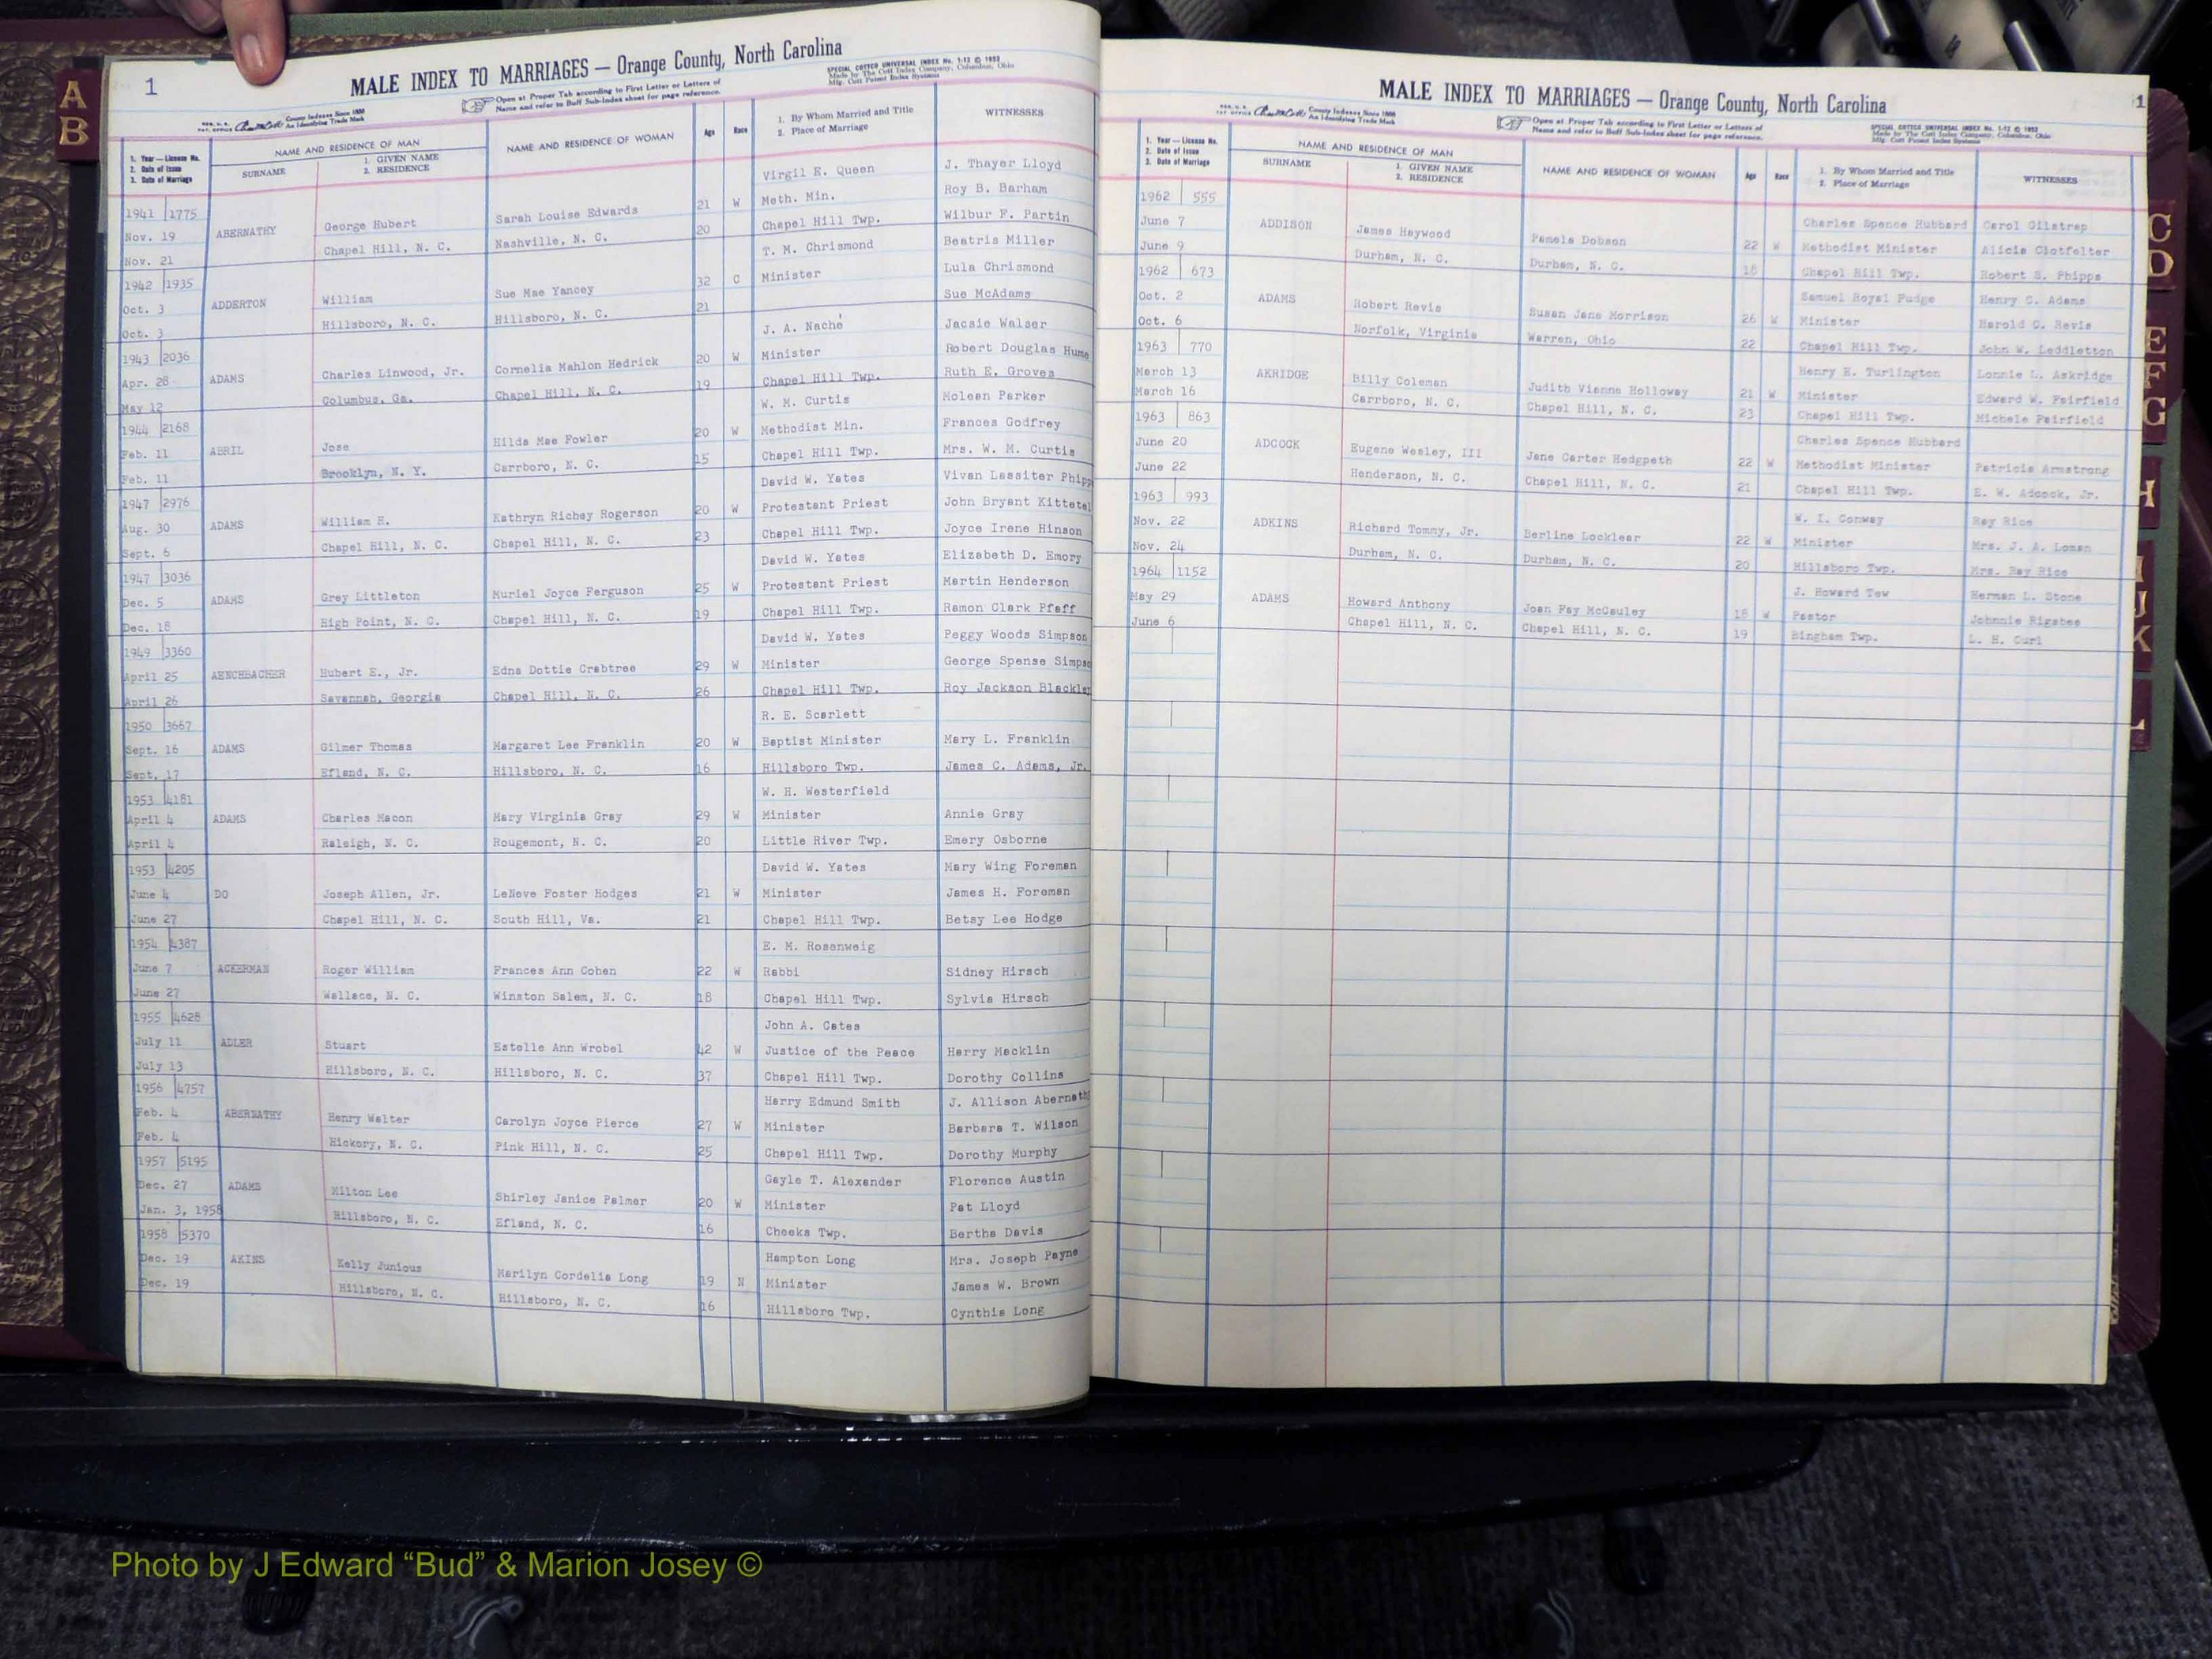 A
B
1
MALE INDEX TO MARRIAGES — Orange County, North Carolina
SPECIAL COTTCO UNIVERSAL INDEX No. 1-12 © 1953
Made by The Cott Index Company, Columbus, Ohio
Mfg. Cott Patent Index Systems
County Indexes Since 1888
An Identifying Trade Mark
Open at Proper Tab according to First Letter or Letters of
Name and refer to Buff Sub-Index sheet for page reference.
1. Year — License No.
2. Date of Issue
3. Date of Marriage
NAME AND RESIDENCE OF MAN
SURNAME
1. GIVEN NAME
2. RESIDENCE
NAME AND RESIDENCE OF WOMAN
Age
Race
1. By Whom Married and Title
2. Place of Marriage
WITNESSES
1941 1775 Virgil E. Queen J. Thayer Lloyd
Nov. 19 ABERNATHY George Hubert Sarah Louise Edwards 21 W Meth. Min. Roy B. Barham
Nov. 21 Chapel Hill, N. C. Nashville, N. C. 20 Chapel Hill Twp. Wilbur F. Partin
1942 1935 T. M. Chrismond Beatris Miller
Oct. 3 ADDERTON William Sue Mae Yancey 32 C Minister Lula Chrismond
Oct. 3 Hillsboro, N. C. Hillsboro, N. C. 21 Sue McAdams
1943 2036 J. A. Naché Jacsie Walser
Apr. 28 ADAMS Charles Linwood, Jr. Cornelia Mahlon Hedrick 20 W Minister Robert Douglas Hume
May 12 Columbus, Ga. Chapel Hill, N. C. 19 Chapel Hill Twp. Ruth E. Groves
1944 2168 W. M. Curtis Moleen Parker
Feb. 11 ABRIL Jose Hilda Mae Fowler 20 W Methodist Min. Frances Godfrey
Feb. 11 Brooklyn, N. Y. Carrboro, N. C. 15 Chapel Hill Twp. Mrs. W. M. Curtis
1947 2976 David W. Yates Vivan Lassiter Phipp
Aug. 30 ADAMS William H. Kathryn Richey Rogerson 20 W Protestant Priest John Bryant Kittetel
Sept. 6 Chapel Hill, N. C. Chapel Hill, N. C. 23 Chapel Hill Twp. Joyce Irene Hinson
1947 3036 David W. Yates Elizabeth D. Emory
Dec. 5 ADAMS Grey Littleton Muriel Joyce Ferguson 25 W Protestant Priest Martin Henderson
Dec. 18 High Point, N. C. Chapel Hill, N. C. 19 Chapel Hill Twp. Ramon Clark Pfaff
1949 3360 David W. Yates Peggy Woods Simpson
April 25 AENCHBACHER Hubert E., Jr. Edna Dottie Crabtree 29 W Minister George Spense Simpso
April 26 Savannah, Georgia Chapel Hill, N. C. 26 Chapel Hill Twp. Roy Jackson Blackle
1950 3667 R. E. Scarlett
Sept. 16 ADAMS Gilmer Thomas Margaret Lee Franklin 20 W Baptist Minister Mary L. Franklin
Sept. 17 Efland, N. C. Hillsboro, N. C. 16 Hillsboro Twp. James C. Adams, Jr.
1953 4181 W. H. Westerfield
April 4 ADAMS Charles Macon Mary Virginia Gray 29 W Minister Annie Gray
April 4 Raleigh, N. C. Rougemont, N. C. 20 Little River Twp. Emery Osborne
1953 4205 David W. Yates Mary Wing Foreman
June 4 DO Joseph Allen, Jr. LeNeve Foster Hodges 21 W Minister James H. Foreman
June 27 Chapel Hill, N. C. South Hill, Va. 21 Chapel Hill Twp. Betsy Lee Hodge
1954 4387 E. M. Rosenweig
June 7 ACKERMAN Roger William Frances Ann Cohen 22 W Rabbi Sidney Hirsch
June 27 Wallace, N. C. Winston Salem, N. C. 18 Chapel Hill Twp. Sylvia Hirsch
1955 4628 John A. Cates
July 11 ADLER Stuart Estelle Ann Wrobel 42 W Justice of the Peace Harry Macklin
July 13 Hillsboro, N. C. Hillsboro, N. C. 37 Chapel Hill Twp. Dorothy Collins
1956 4757 Harry Edmund Smith J. Allison Abernath
Feb. 4 ABERNATHY Henry Walter Carolyn Joyce Pierce 27 W Minister Barbara T. Wilson
Feb. 4 Hickory, N. C. Pink Hill, N. C. 25 Chapel Hill Twp. Dorothy Murphy
1957 5195 Gayle T. Alexander Florence Austin
Dec. 27 ADAMS Milton Lee Shirley Janice Palmer 20 W Minister Pat Lloyd
Jan. 3, 1958 Hillsboro, N. C. Efland, N. C. 16 Cheeks Twp. Bertha Davis
1958 5370 Hampton Long Mrs. Joseph Payne
Dec. 19 AKINS Kelly Junious Marilyn Cordelia Long 19 N Minister James W. Brown
Dec. 19 Hillsboro, N. C. Hillsboro, N. C. 16 Hillsboro Twp. Cynthia Long
MALE INDEX TO MARRIAGES — Orange County, North Carolina
1
County Indexes Since 1888
An Identifying Trade Mark
Open at Proper Tab according to First Letter or Letters of
Name and refer to Buff Sub-Index sheet for page reference.
SPECIAL COTTCO UNIVERSAL INDEX No. 1-12 © 1953
Made by The Cott Index Company, Columbus, Ohio
Mfg. Cott Patent Index Systems
1. Year — License No.
2. Date of Issue
3. Date of Marriage
NAME AND RESIDENCE OF MAN
SURNAME
1. GIVEN NAME
2. RESIDENCE
NAME AND RESIDENCE OF WOMAN
Age
Race
1. By Whom Married and Title
2. Place of Marriage
WITNESSES
1962 555 Charles Spence Hubbard Carol Gilstrap
June 7 ADDISON James Haywood Pamela Dobson 22 W Methodist Minister Alicia Clotfelter
June 9 Durham, N. C. Durham, N. C. 18 Chapel Hill Twp. Robert S. Phipps
1962 673 Samuel Royal Fudge Henry C. Adams
Oct. 2 ADAMS Robert Revis Susan Jane Morrison 26 W Minister Harold G. Revis
Oct. 6 Norfolk, Virginia Warren, Ohio 22 Chapel Hill Twp. John W. Leddletton
1963 770 Henry E. Turlington Lonnie L. Askridge
March 13 AKRIDGE Billy Coleman Judith Vienne Holloway 21 W Minister Edward W. Fairfield
March 16 Carrboro, N. C. Chapel Hill, N. C. 23 Chapel Hill Twp. Michele Fairfield
1963 863 Charles Spence Hubbard
June 20 ADCOCK Eugene Wesley, III Jane Carter Hedgpeth 22 W Methodist Minister Patricia Armstrong
June 22 Henderson, N. C. Chapel Hill, N. C. 21 Chapel Hill Twp. E. W. Adcock, Jr.
1963 993 W. I. Conway Ray Rice
Nov. 22 ADKINS Richard Tommy, Jr. Berline Locklear 22 W Minister Mrs. J. A. Loman
Nov. 24 Durham, N. C. Durham, N. C. 20 Hillsboro Twp. Mrs. Ray Rice
1964 1152 J. Howard Tew Herman L. Stone
May 29 ADAMS Howard Anthony Joan Fay McCauley 18 W Pastor Johnnie Rigsbee
June 6 Chapel Hill, N. C. Chapel Hill, N. C. 19 Bingham Twp. L. H. Curl
C
D
E
F
G
H
I
J
K
L
Photo by J Edward “Bud” & Marion Josey ©